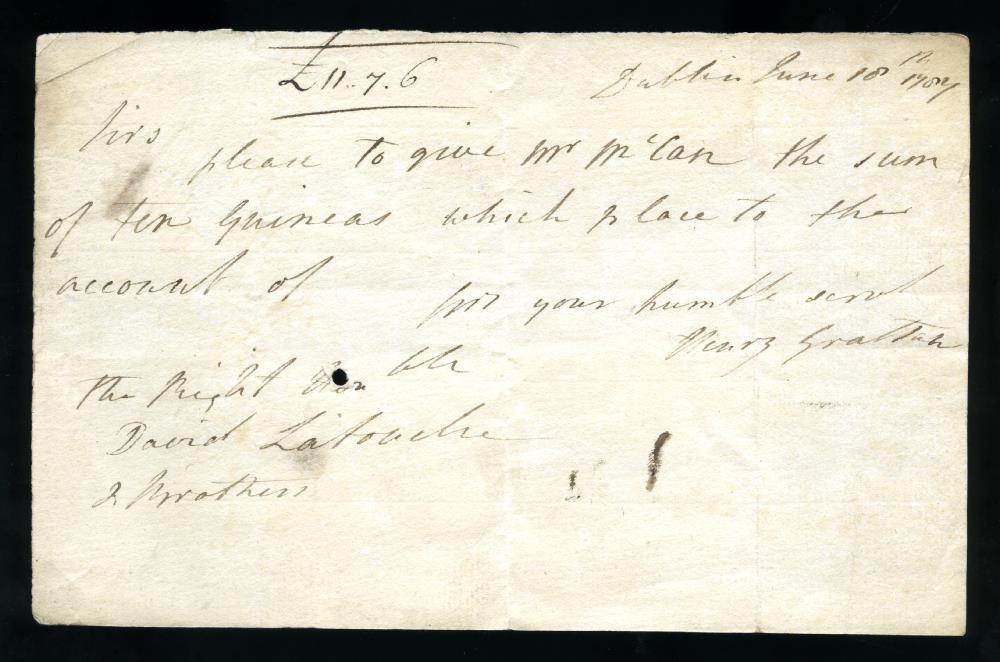 £11..7.6
Dublin June 18th
Sirs
please to give Mr McCan the sum
of ten Guineas which place to the
account of
Sirs your humble servt
Henry Grattan
The Right Honble
David Latouche
& Brothers